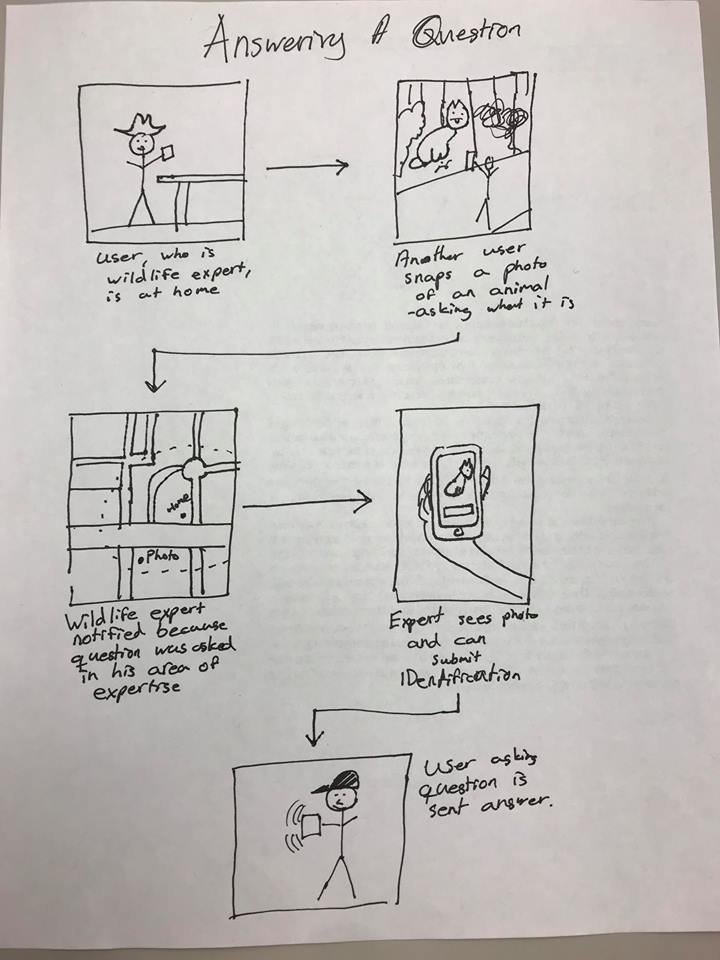 Answering A Question
User, who is
wildlife expert,
is at home
Another user
snaps a photo
of an animal
-asking what it is
Home
Photo
Wildlife expert
notified because
question was asked
in his area of
expertise
Expert sees photo
and can
submit
IDentification
User asking
question is
sent answer.